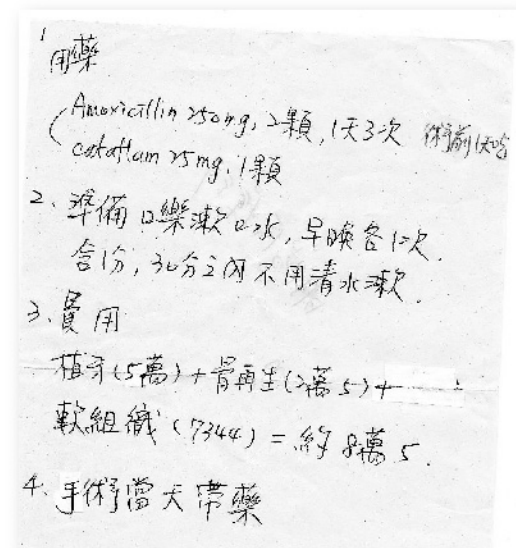 1 用藥
Amoxicillin 250mg, 2顆, 1天3次 術前1天吃
cataflam 25mg, 1顆
2、準備口樂漱口水, 早晚各1次.
含1分, 30分之內不用清水漱.
3、費用
植牙(5萬)+骨再生(2萬5)+
軟組織(7344)=約8萬5.
4、手術當天帶藥